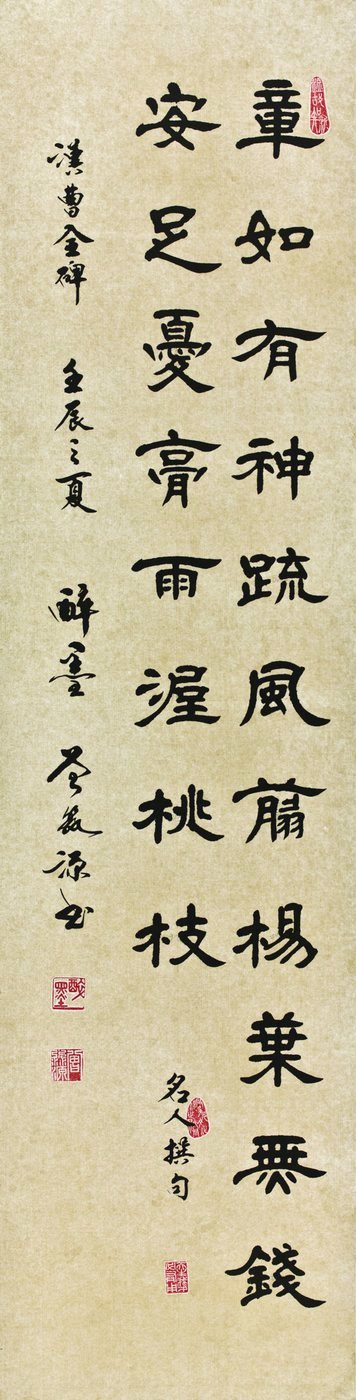 章如有神疏風萷楊葉無錢
安足憂膏雨渥桃枝
名人撰句
漢曹全碑 壬辰之夏 醉墨 源书